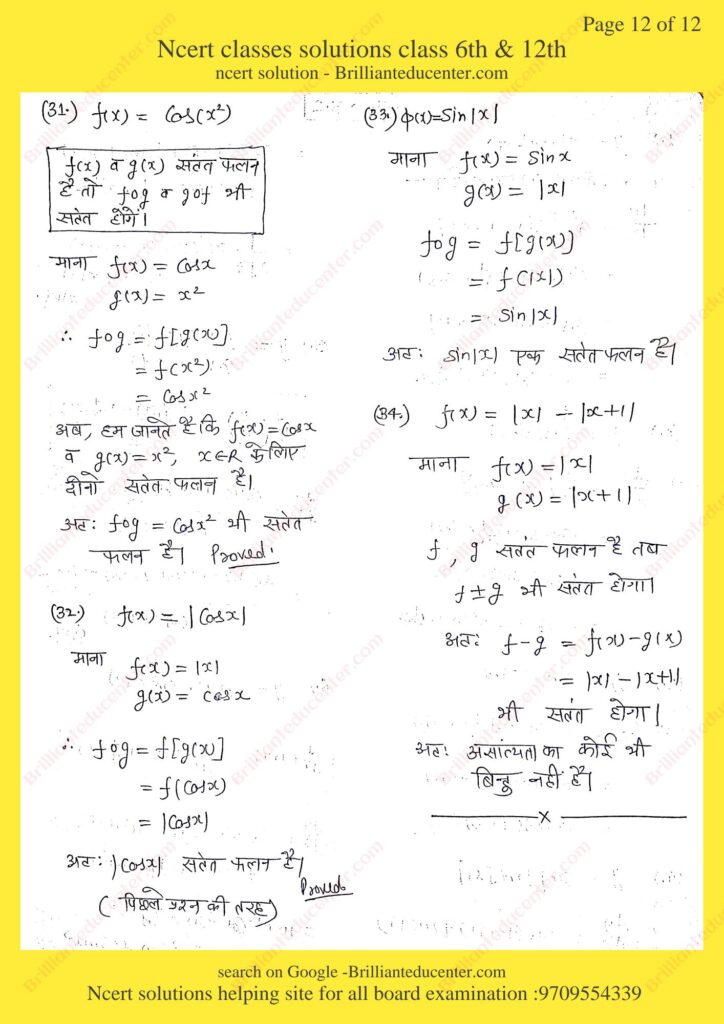 Page 12 of 12
Ncert classes solutions class 6th & 12th
ncert solution - Brillianteducenter.com
(31.) f(x) = Cos(x²)
f(x) व g(x) संतत फलन
है तो fog व gof भी
सतत होंगे।
माना f(x) = Cosx
g(x) = x²
∴ fog = f[g(x)]
= f(x²)
= Cosx²
अब, हम जानते है कि f(x) = Cosx
व g(x) = x², x∈R के लिए
दोनो सतत फलन है।
अतः fog = Cosx² भी सतत
फलन है। Proved.
(32.) f(x) = |Cosx|
माना f(x) = |x|
g(x) = cosx
∴ fog = f[g(x)]
= f(Cosx)
= |Cosx|
अतः |Cosx| सतत फलन है।
Proved
( पिछले प्रश्न की तरह)
(33.) φ(x)=Sin|x|
माना f(x) = Sinx
g(x) = |x|
fog = f[g(x)]
= f(|x|)
= Sin|x|
अतः Sin|x| एक सतत फलन है।
(34.) f(x) = |x| - |x+1|
माना f(x) = |x|
g(x) = |x+1|
f, g संतत फलन है तब
f±g भी संतत होगा।
अतः f-g = f(x)-g(x)
= |x|-|x+1|
भी संतत होगा।
अतः असातत्यता का कोई भी
बिन्दु नहीं है।
x
search on Google -Brillianteducenter.com
Ncert solutions helping site for all board examination :9709554339